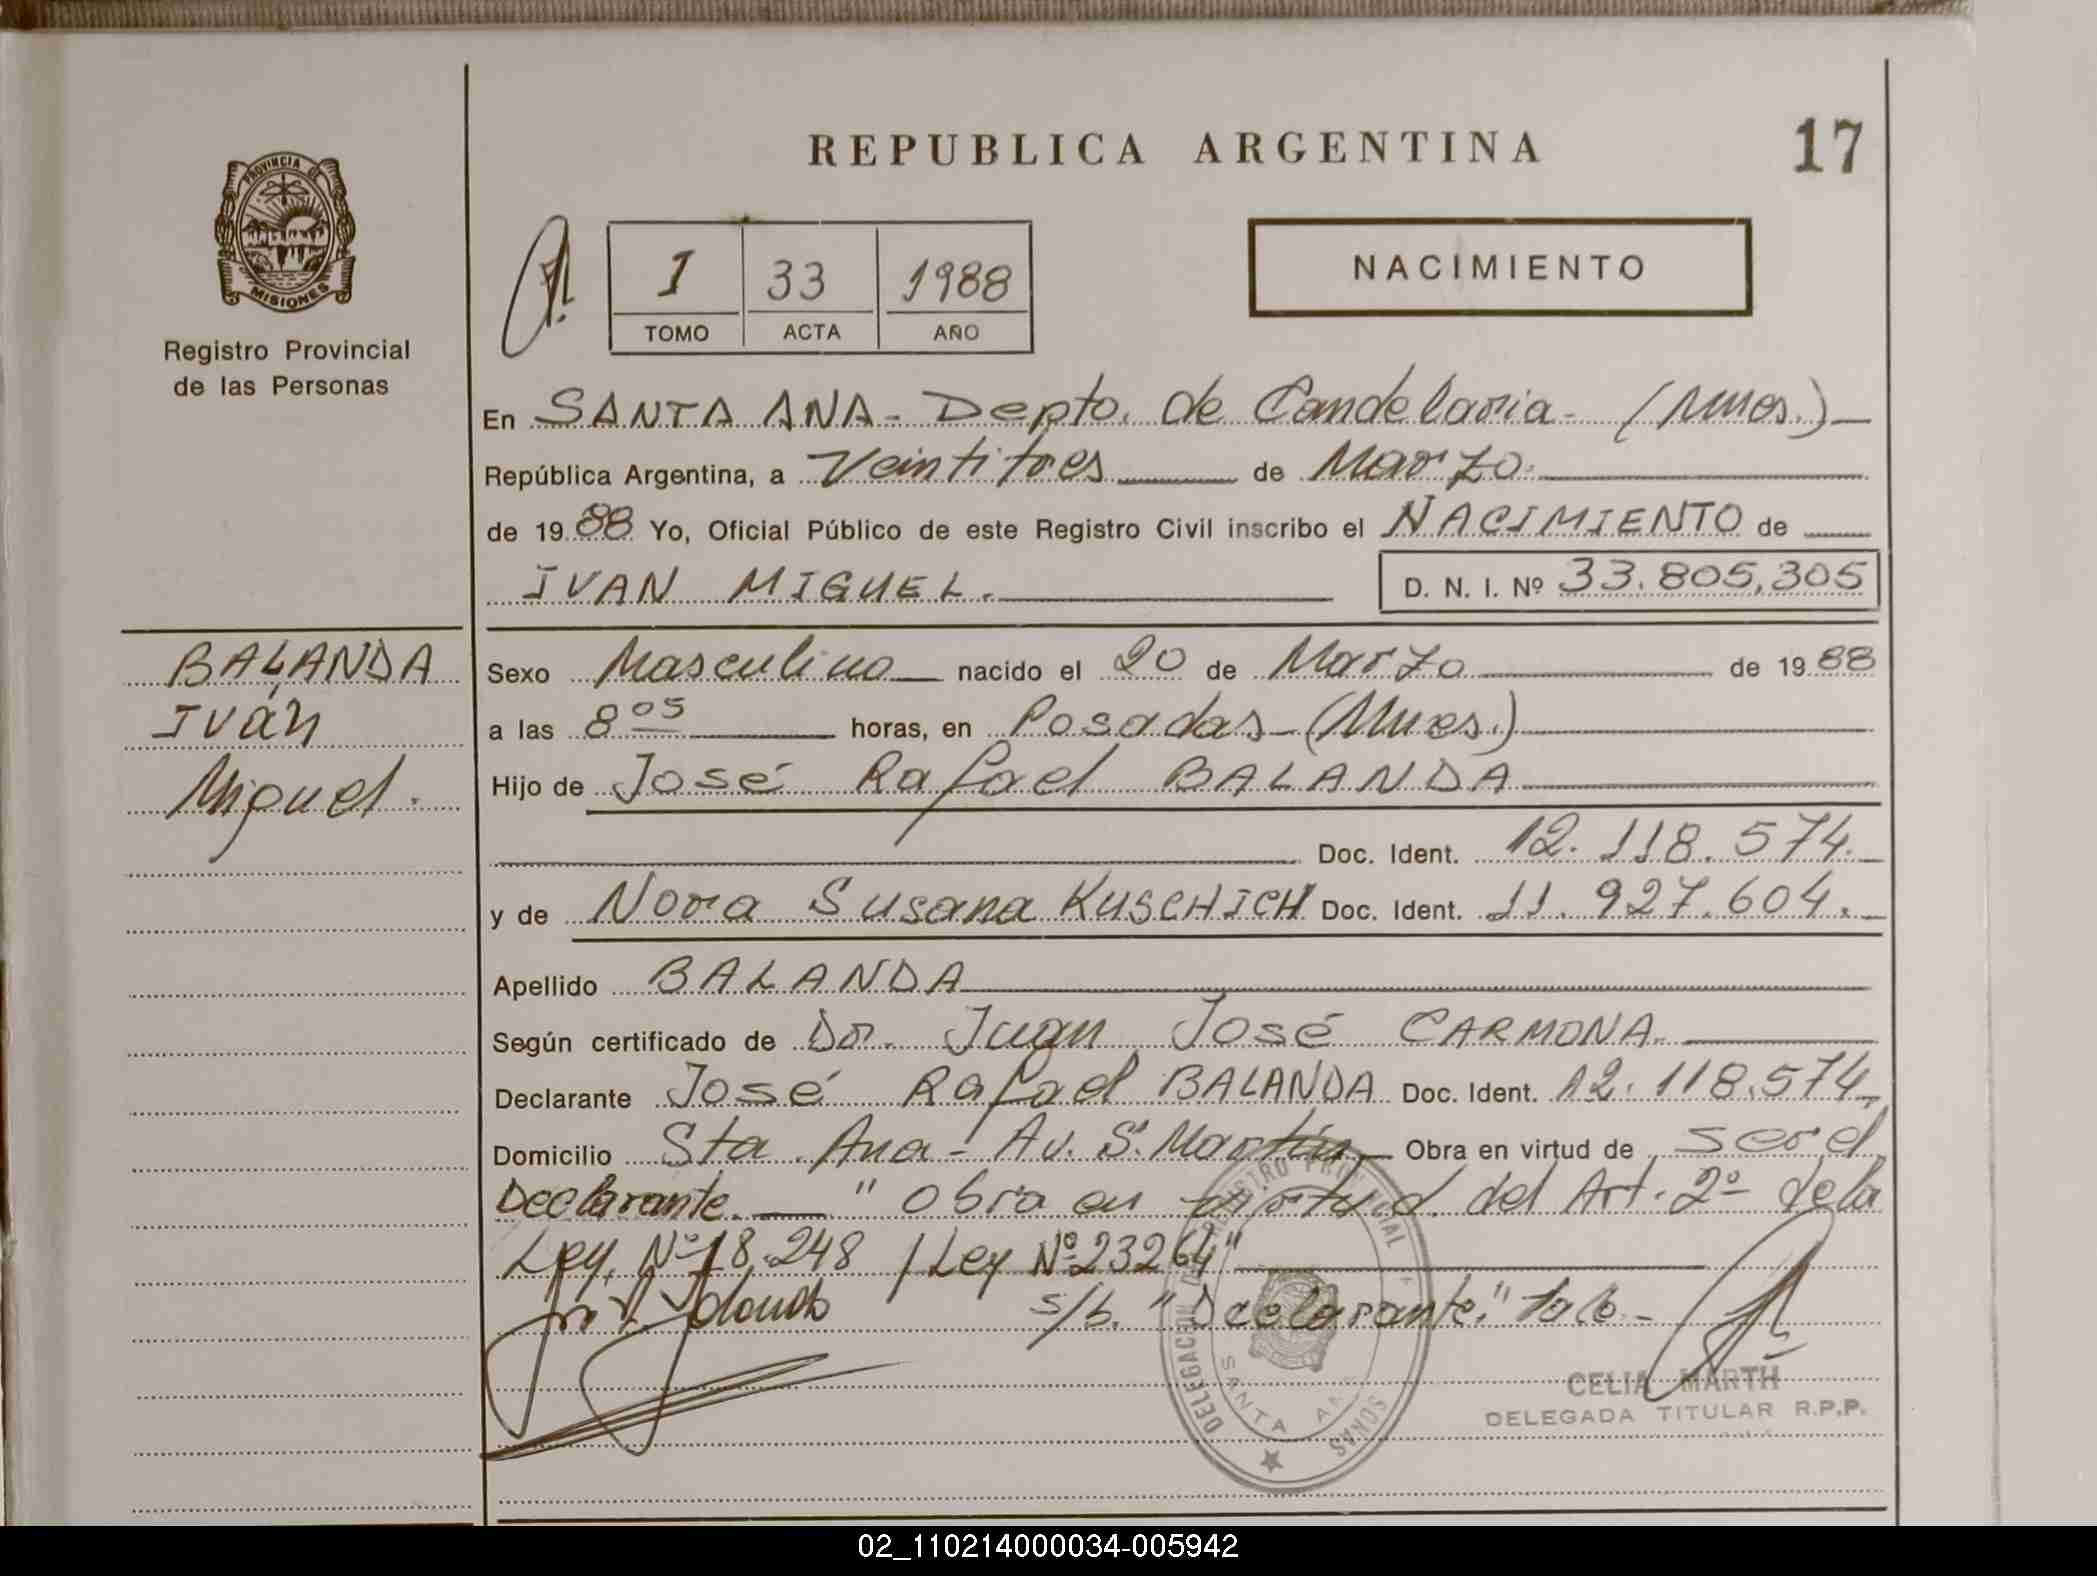 REPUBLICA ARGENTINA
17
PROVINCIA DE
MISIONES
Registro Provincial
de las Personas
1 33 1988
TOMO ACTA AÑO
NACIMIENTO
En SANTA ANA - Depto. de Candelaria - (Mnes.)
República Argentina, a Veintitres de Marzo.
de 19 88 Yo, Oficial Público de este Registro Civil inscribo el NACIMIENTO de
IVAN MIGUEL. D. N. I. Nº 33.805,305
BALANDA
Iván
Miguel.
Sexo Masculino nacido el 20 de Marzo de 19 88
a las 8 05 horas, en Posadas - (Mnes.)
Hijo de José Rafael BALANDA
Doc. Ident. 12.118.574.
y de Nora Susana KUSCHICH Doc. Ident. 11.927.604.
Apellido BALANDA
Según certificado de Dr. Juan José CARMONA.
Declarante José Rafael BALANDA Doc. Ident. 12.118.574
Domicilio Sta. Ana - Av. S. Martín Obra en virtud de ser el
Declarante. " Obra en virtud del Art. 2º de la
Ley Nº 18.248 / Ley Nº 23264"
s/b. "Declarante." Vale -
DELEGACION REGISTRO PROVINCIAL
SANTA ANA
CELIA MARTH
DELEGADA TITULAR R.P.P.
02_110214000034-005942